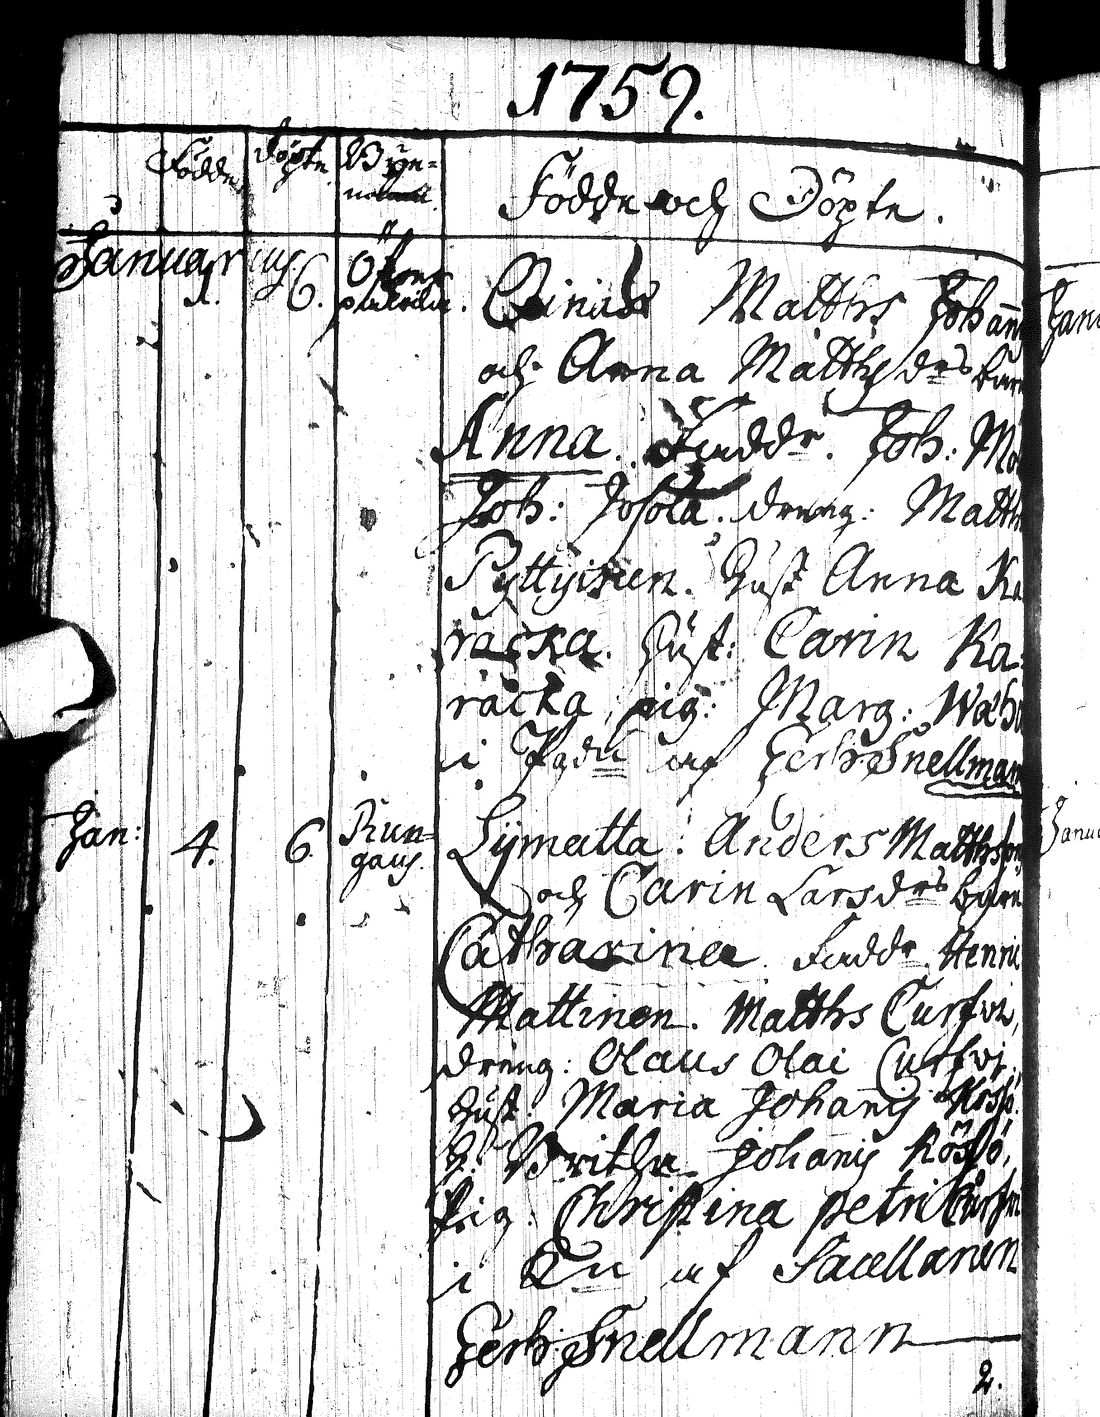 1759.
Födde Döpte Bye-
Födde och Döpte.
Januarius
1. 6. Matths Johann
och Anna Matths drs barn
Anna. Faddr. Joh: Ma
Joh: Josola. dreng: Matth
Pyttyinen. Hust Anna Ka
racka. Hust: Carin Ka-
racka pig: Marg: Waha
i af Gerh: Snellman
Jan: 4. 6. Run-
gaus. Lymatta: Anders Matthson
och Carin Larsdrs barn
Catharina. Faddr. Henri
Mattinen. Matths Curfvi,
dreng: Olaus Olai Curfvi.
Hust: Maria Johanis
H. Britha Johanis
Pig: Christina petri Curfvi
i af Sacellanen
Gerh: Snellmann
2.